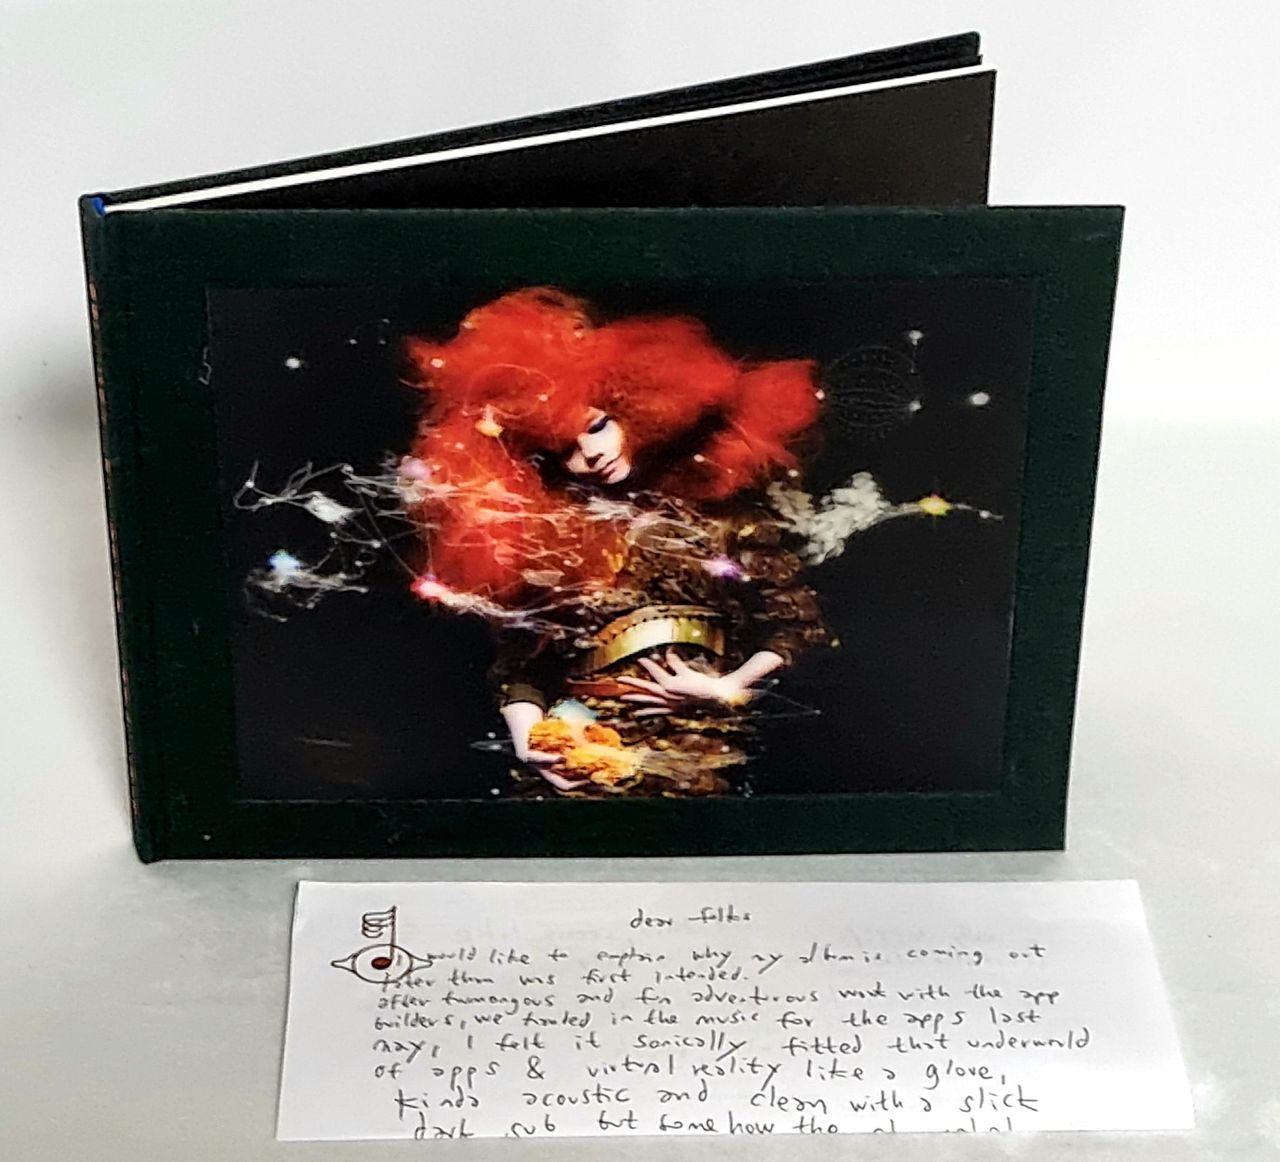 dear folks
I would like to explain why my album is coming out
later than was first intended.
after humongous and fun adventurous work with the app
builders, we handed in the music for the apps last
may, I felt it sonically fitted that underworld
of apps & virtual reality like a glove,
kinda acoustic and clean with a slick
dark sub but somehow the